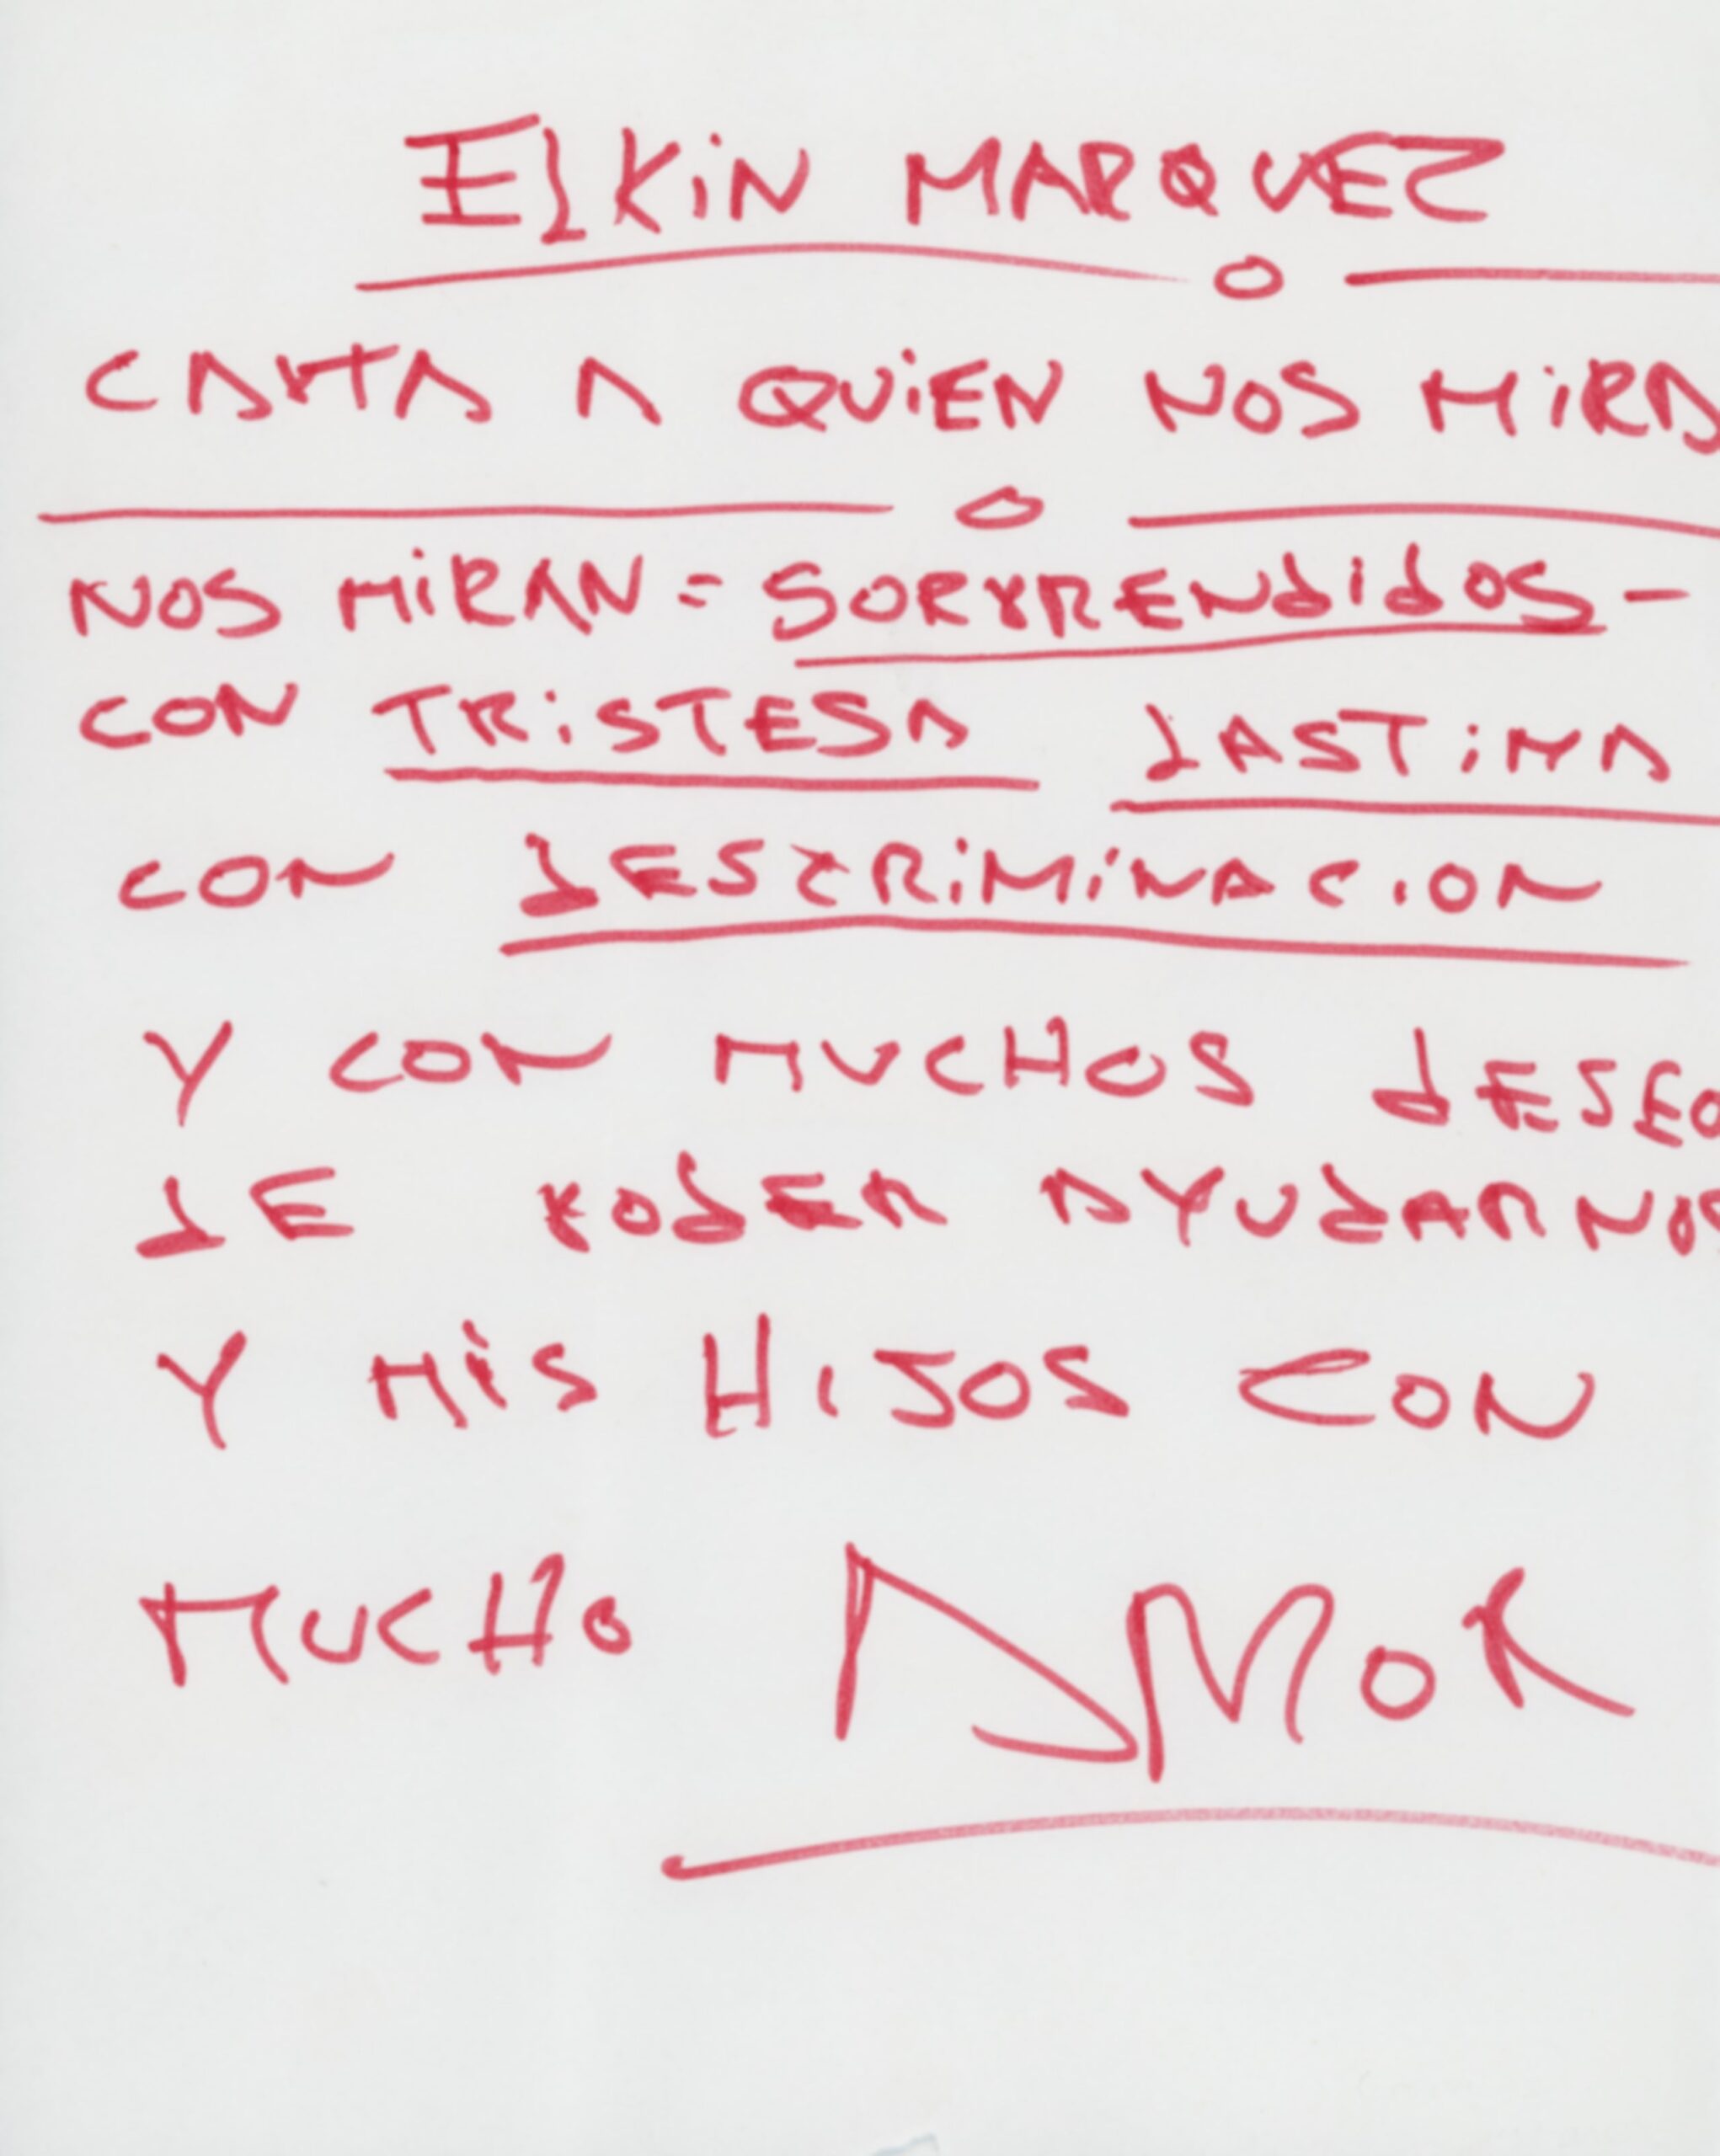 ELKiN MARQUEZ
CARTA A QUiEN NOS MiRA
NOS MiRAN = SORPRENdidOS -
CON TRiSTESA LASTiMA
CON dESCRiMiNACiON
Y CON MUCHOS dESEO
dE POdER AYUdARNOS
Y MiS HIJOS CON
MUCHO AMOR